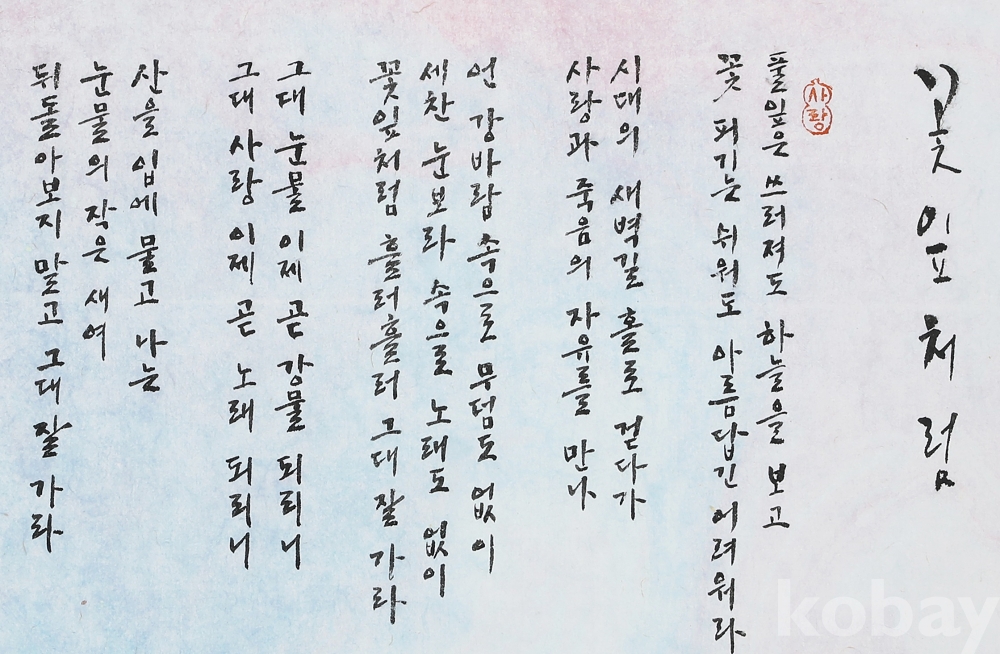 꽃잎처럼
사랑
풀잎은 쓰러져도 하늘을 보고
꽃 피기는 쉬워도 아름답긴 어려워라
시대의 새벽길 홀로 걷다가
사랑과 죽음의 자유를 만나
언 강바람 속으로 무덤도 없이
세찬 눈보라 속으로 노래도 없이
꽃잎처럼 흘러흘러 그대 잘 가라
그대 눈물 이제 곧 강물 되리니
그대 사랑 이제 곧 노래 되리니
산을 입에 물고 나는
눈물의 작은 새여
뒤돌아보지 말고 그대 잘 가라
kobay